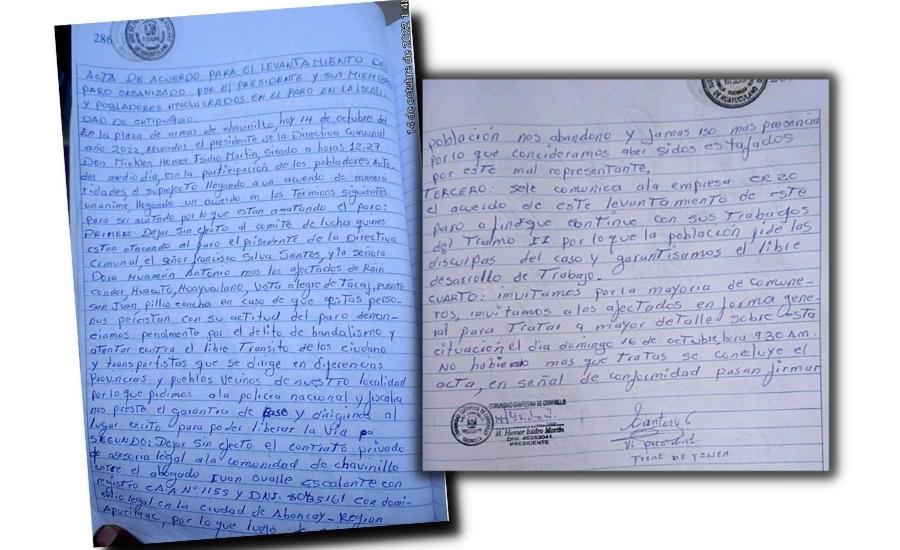 286
14 de octubre de 2022
ACTA DE ACUERDO PARA EL LEVANTAMIENTO DE
PARO ORGANIZADO POR EL PRESIDENTE Y SUS MIEMB
Y POBLADORES INVOLUCRADOS EN EL PARO EN LA LOCALI
DAD DE CUTIPUQUIO
En la plaza de armas de chavinillo, hoy 14 de octubre del
año 2022, Reunidos el presidente de la Directiva Comunal
Don Micklen Hemer Isidro Martin, siendo a horas 12:27
del medio dia, con la participación de los pobladores Auto
ridades el supsefecto llegando a un acuerdo de manera
unanime, llegando un acuerdo en los Terminos siguientes
para ser acatado por lo que estan acatando el paro:
PRIMERO: Dejar sin efecto al comite de lucha quines
estan atacando al paro el prisedente de la Directiva
Comunal, el señor francisco Silva Santos, y la señora
Dora Huamán Antonio mas los afectados de Rain
condor, Huacuto, Huayuolano, Vista alegre de Tacaj, puente
San Juan pillio cancha en caso de que estas perso-
nas percistan con su actitud del paro denun-
ciamos penalmente por el delito de bandalismo y
atentar contra el libre Transito de los ciudano
y transportistas que se dirige en diferencias
Provincias y pueblos vecinos de nuestro localidad
por lo que pidimos a la policia nacional y fiscalia
nos preste el garantia de caso y dirigirse al
lugar encito para poder liberar la via pu
SEGUNDO: Dejar sin efecto el contrato privado
de asesoria legal a la comunidad de chavinillo
entre el abogado Juan ovalle Escalante con
registro CAA N° 1155 y DNI. con domi-
cilio legal en la ciudad de Abancay - Region
Apurimac, por lo que luego
población nos abandono y Jamas iso mas presencia
por lo que concideramos aber sidos estafados
por este mal representante.
TERCERO: sele comunica ala empresa CR20
el acuerdo de este levantamiento de este
paro a fin de que continue con sus Trabados
del Tramo II por lo que la población pide las
discurpas del caso y garantisamos el libre
desarrollo de Trabajo.
CUARTO: imvitamos por la mayoria de comune-
ros, imvitamos a los afectados en forma gene-
ral para Tratar a mayor detalle sobre esta
cituación el dia domingo 16 de octubre, hora 9:30 AM.
No habiendo mas que tratas se concluye el
acta, en señal de conformidad pasan firmar
COMUNIDAD CAMPESINA DE CHAVINILLO
M. Hemer Isidro Martin
DNI. 46353041
PRESIDENTE
Santos G
Vi president.